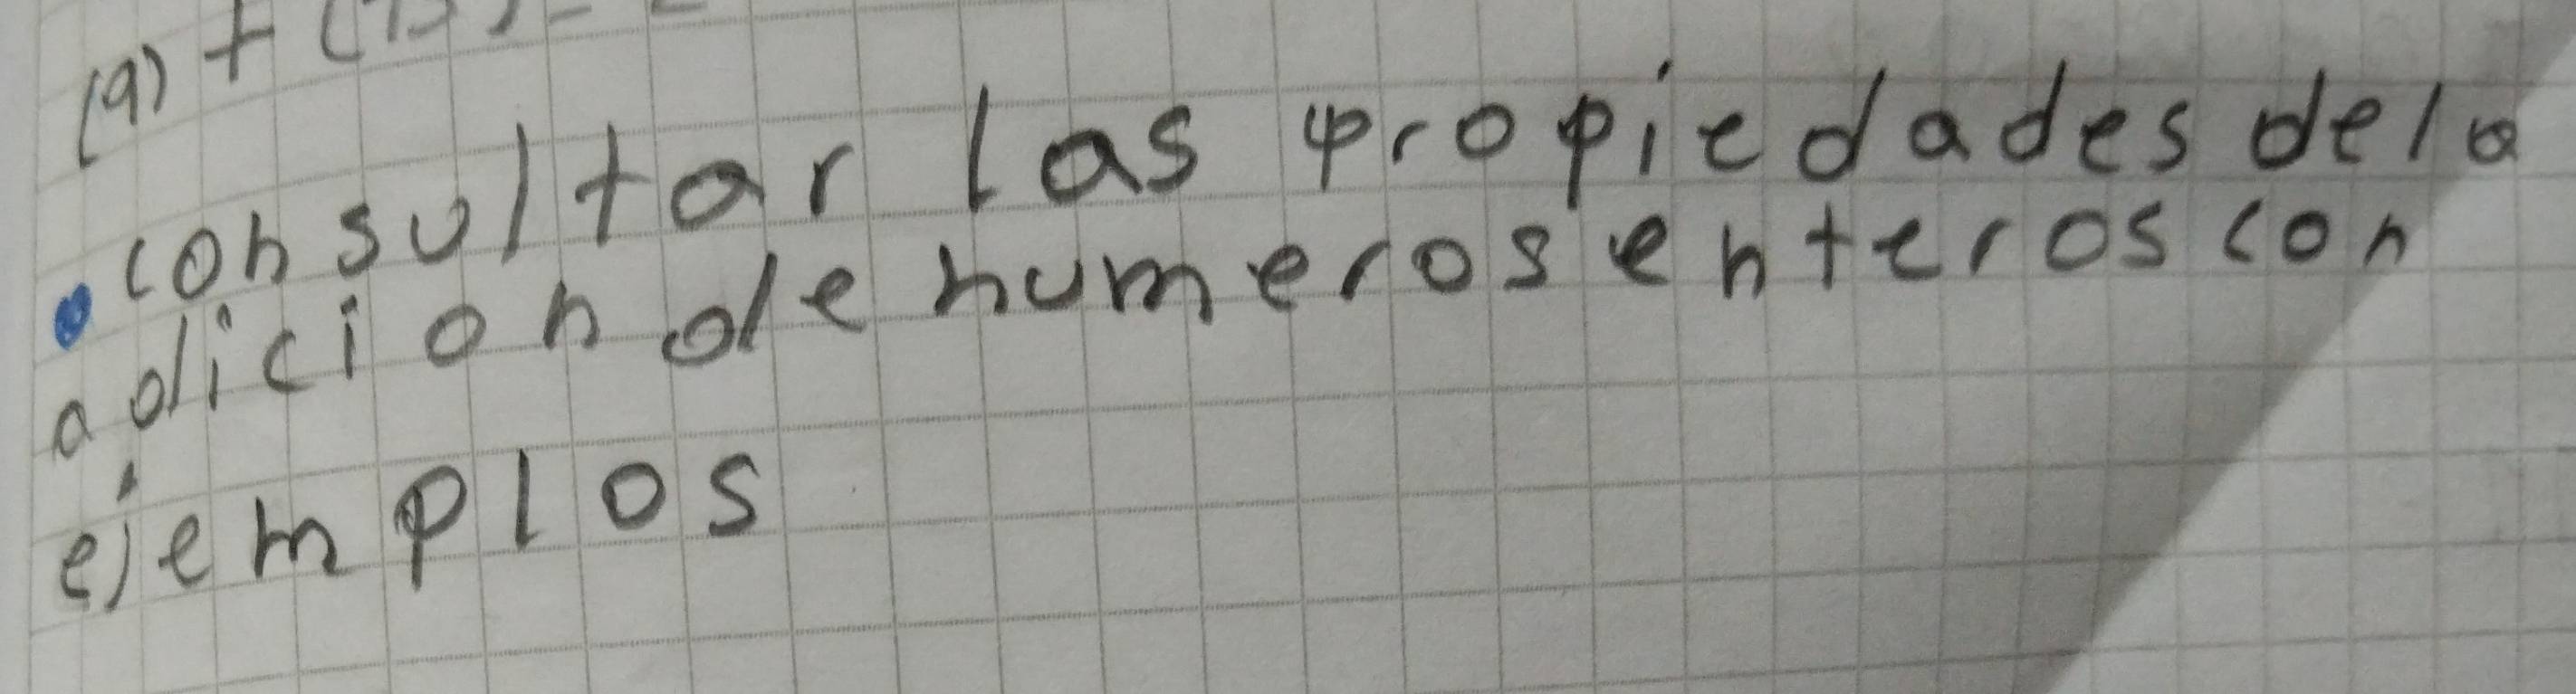 (9) + (
consultar las propiedades de la
adicion de numeros enteros con
ejemplos